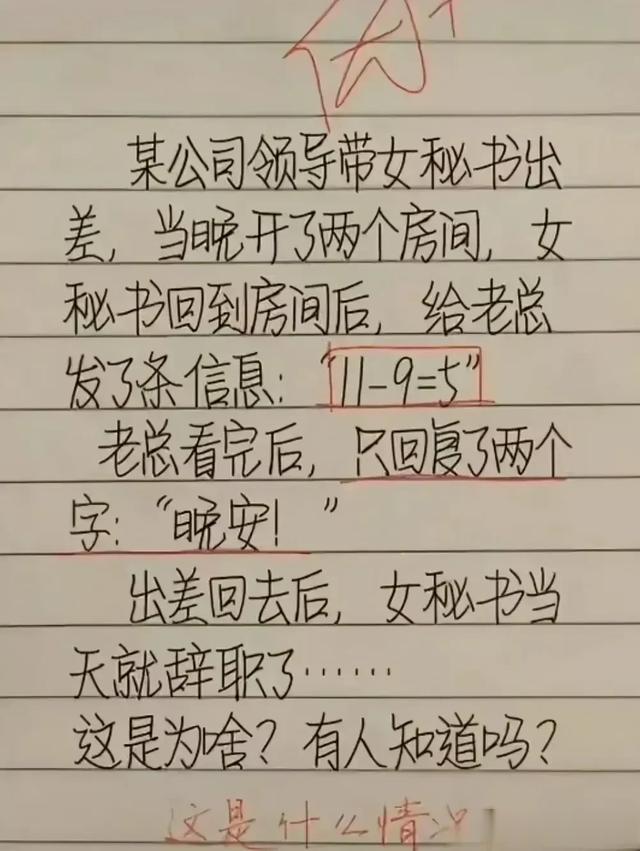 某公司领导带女秘书出
差，当晚开了两个房间，女
秘书回到房间后，给老总
发了条信息：“11-9=5”
老总看完后，只回复了两个
字：“晚安！”
出差回去后，女秘书当
天就辞职了……
这是为啥？有人知道吗？
这是什么情况